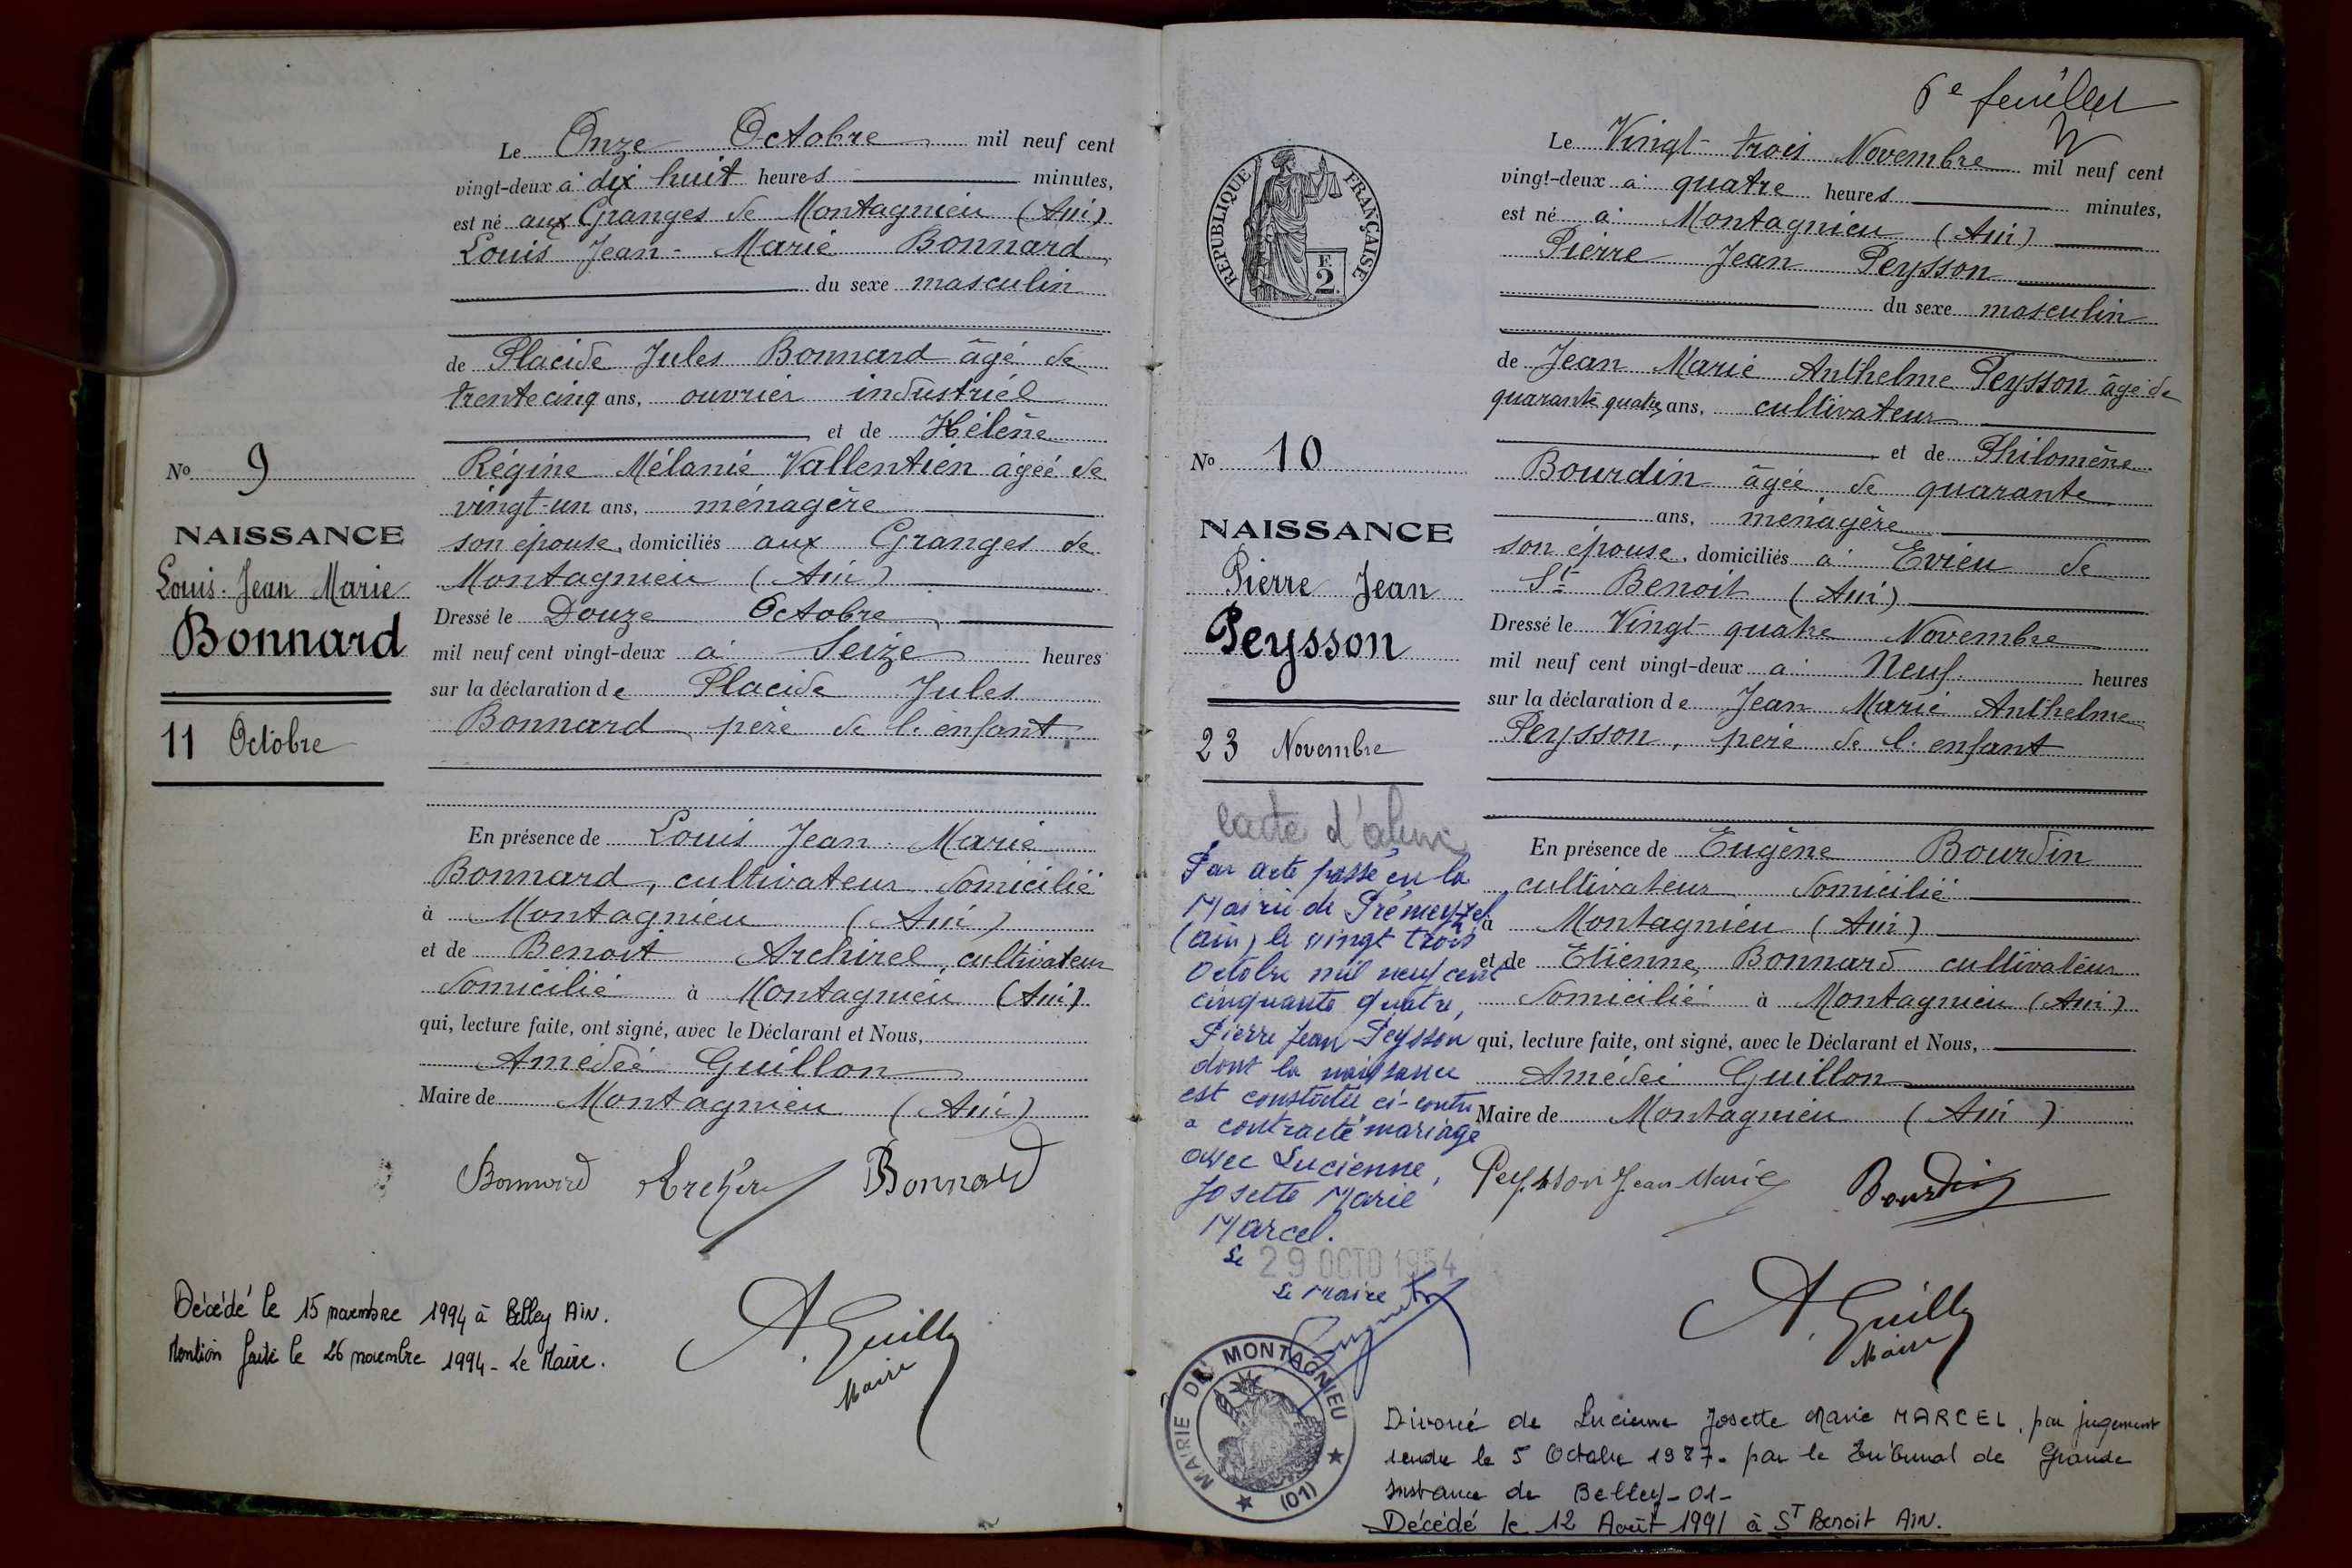 Le Onze Octobre mil neuf cent
vingt-deux à dix huit heures minutes,
est né aux Granges de Montagnieu (Ain)
Louis Jean-Marie Bonnard
du sexe masculin
de Placide Jules Bonnard âgé de
trente cinq ans, ouvrier industriel
et de Hélène
Régine Mélanie Vallentien âgée de
vingt-un ans, ménagère
son épouse, domiciliés aux Granges de
Montagnieu (Ain)
Dressé le Douze Octobre
mil neuf cent vingt-deux à Seize heures
sur la déclaration de Placide Jules
Bonnard père de l'enfant
En présence de Louis Jean-Marie
Bonnard, cultivateur domicilié
à Montagnieu (Ain)
et de Benoit Archirel, cultivateur
domicilié à Montagnieu (Ain)
qui, lecture faite, ont signé, avec le Déclarant et Nous,
Amédée Guillon
Maire de Montagnieu (Ain)
Bonnard Bonnard
A. Guillon
Maire
No 9
NAISSANCE
Louis-Jean Marie
Bonnard
11 Octobre
Décédé le 15 novembre 1994 à Belley Ain.
Mention faite le 26 novembre 1994 - Le Maire.
6e feuillet
RÉPUBLIQUE FRANÇAISE
F.
2.
Le Vingt-trois Novembre mil neuf cent
vingt-deux à quatre heures minutes,
est né à Montagnieu (Ain)
Pierre Jean Peysson
du sexe masculin
de Jean Marie Anthelme Peysson âgé de
quarante quatre ans, cultivateur
et de Philomène
Bourdin âgée de quarante
ans, ménagère
son épouse, domiciliés à Evieu de
St Benoit (Ain)
Dressé le Vingt-quatre Novembre
mil neuf cent vingt-deux à Neuf heures
sur la déclaration de Jean Marie Anthelme
Peysson, père de l'enfant
En présence de Eugène Bourdin
cultivateur domicilié
à Montagnieu (Ain)
et de Etienne Bonnard cultivateur
domicilié à Montagnieu (Ain)
qui, lecture faite, ont signé, avec le Déclarant et Nous,
Amédée Guillon
Maire de Montagnieu (Ain)
Peysson Jean-Marie Bourdin
A. Guillon
Maire
No 10
NAISSANCE
Pierre Jean
Peysson
23 Novembre
carte d'alim
Par acte passé en la
Mairie de Prémeyzel
(Ain) le vingt trois
Octobre mil neuf cent
cinquante quatre,
Pierre Jean Peysson
dont la naissance
est constatée ci-contre
a contracté mariage
avec Lucienne,
Josette Marie
Marcel.
Le 29 OCTO 1954
Le Maire
MAIRIE DE MONTAGNIEU
(01)
Divorcé de Lucienne Josette Marie MARCEL, par jugement
rendu le 5 Octobre 1987. par le Tribunal de Grande
Instance de Belley-01-
Décédé le 12 Août 1991 à ST Benoit Ain.